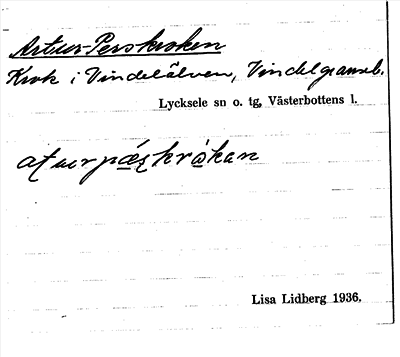 Artur-Perskroken
Krok i Vindelälven, Vindelgransel.
Lycksele sn o. tg, Västerbottens l.
Lisa Lidberg 1936.